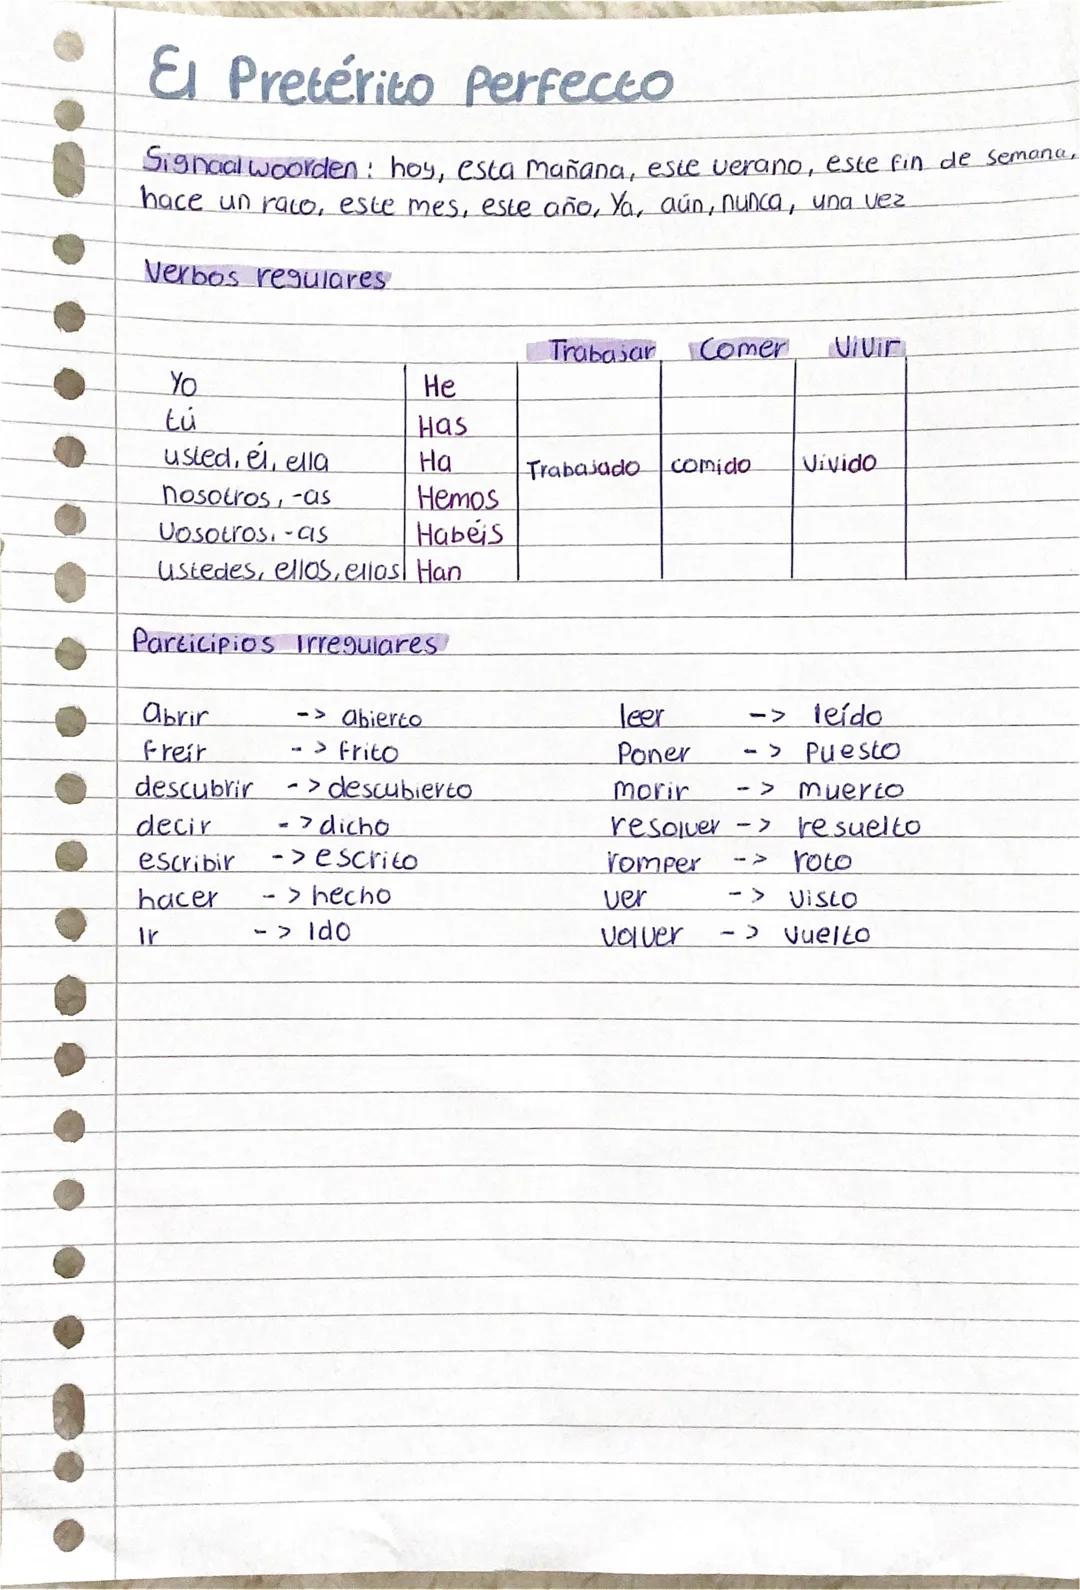 El Pretérito Perfecto
Signaalwoorden: hoy, esta mañana, este verano, este fin de semana,
hace un rato, este mes, este año, Ya, aún, nunca, una vez
Verbos regulares
Trabajar Comer Vivir
Yo He
tú Has
usted, él, ella Ha Trabajado comido Vivido
nosotros, -as Hemos
Vosotros, -as Habéis
ustedes, ellos, ellas Han
Participios Irregulares
Abrir -> abierto leer -> leído
freír -> frito Poner -> Puesto
descubrir -> descubierto morir -> muerto
decir -> dicho resolver -> resuelto
escribir -> escrito romper -> roto
hacer -> hecho ver -> visto
Ir -> Ido volver -> vuelto